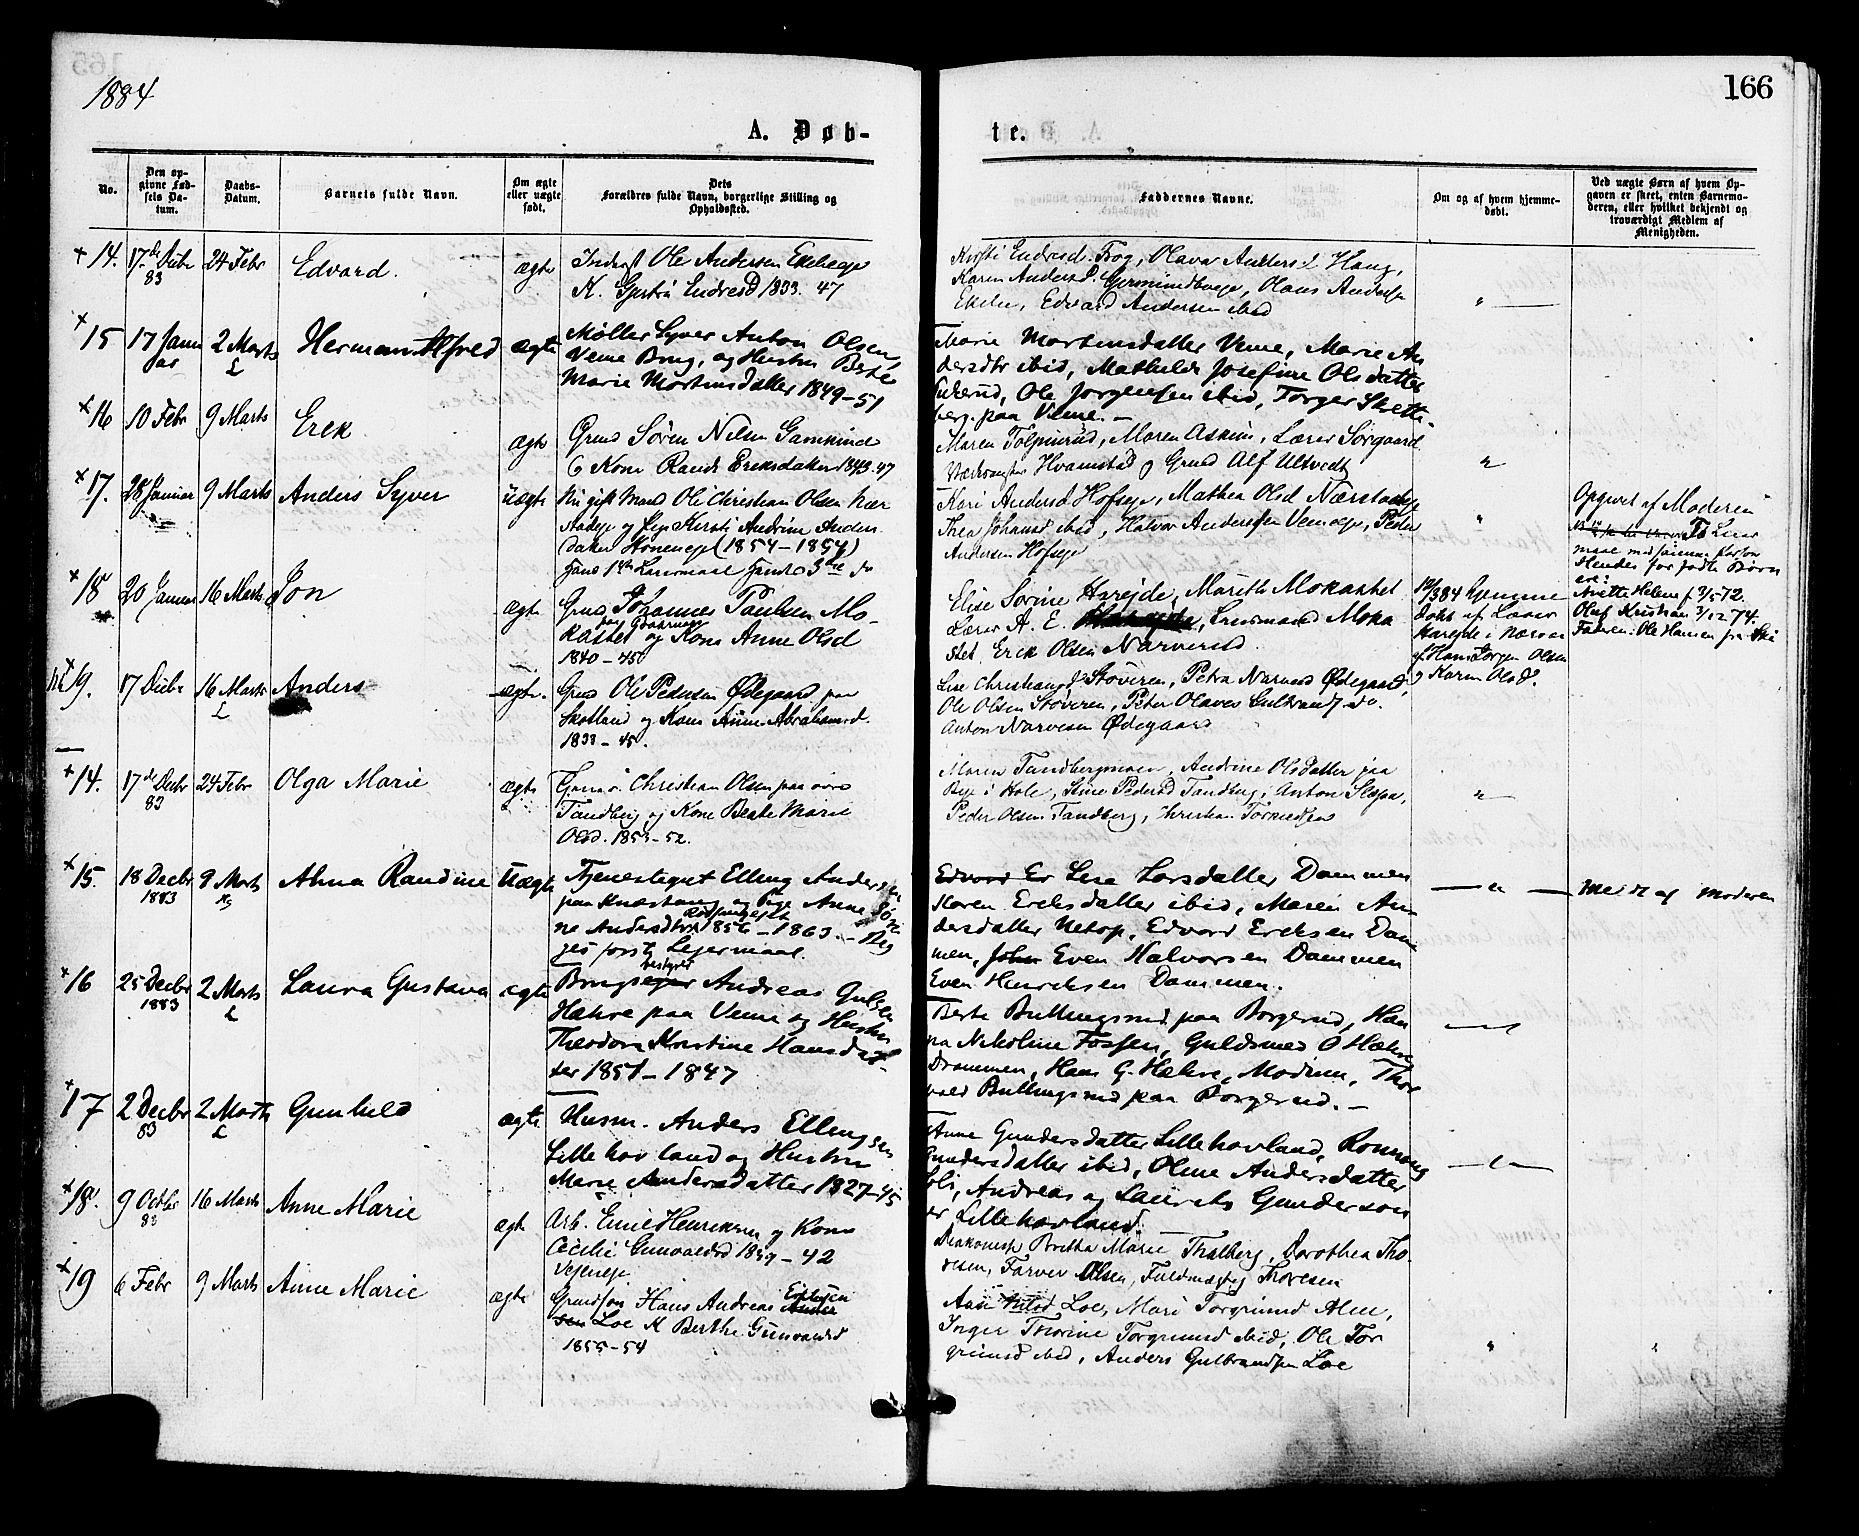 1884
166
A. Døb-
te.
No.
Den op-
givne Fød-
sels Da-
tum.
Daabs-
Datum.
Barnets fulde Navn.
Om ægte
eller uægte
født.
Dets
Forældres fulde Navn, borgerlige Stilling og
Opholdssted.
Faddernes Navne.
Om og af hvem hjemme-
døbt.
Ved uægte Børn af hvem Op-
gaven er skeet, enten Barnemo-
deren, eller hvilket bekjendt og
troværdigt Medlem af
Menigheden.
+ 14. 17de Decbr 83 24 Febr Edvard. ægte
Ole Andersen Ekeberg
K. Endresd 1833. 47
Kirsti Endresd. Frog, Olava Andersd Haug,
Karen Andersd. Olaus Andersen
Edvard Andersen ibid
+ 15 17 Januar 2 Marts L Herman Alfred ægte
Møller Syver Anton Olsen,
Veme Brug, og Hustru Berte
Marie Mortensdatter 1849-51
Marie Mortensdatter Veme, Marie An
dersdtr ibid, Mathilde Josefine Olsdatter
Ole Jørgensen ibid, Torger Skrette
berg paa Veme. -
+ 16 10 Febr 9 Marts Erek ægte
Grmd Søren Nilsen
& Kone Randi Eriksdatter 1843. 47
Maren Maren Askim, Lærer Sørgaard
Hvamstad og Grmd Alf Ultvedt
+ 17. 28 Januar 9 Marts Anders Syver uægte
Nu gift Mand Ole Christian Olsen Nær
stadeje og Pige Kirsti Andrine Anders
datter Høneneje (1854-1854)
Hans 1ste Leiermaal Hendes 3die do
Kari Andersd Hofseje, Mathea Olsd Nærstadeje
Thea Johansd ibid, Halvor Andersen Veeneje, Peder
Andersen Hofseje
Opgivet af Moderen
Leier
maal med samme person
Hendes før fødte Børn
ere:
Anette Helene f. 3/5 72.
Oluf Kristian 3/12 74.
Faderen: Ole Hansen fra
+ 18 20 Januar 16 Marts Jon ægte
Grmd Johannes Paulsen Mo-
kastet og Kone Anne Olsd
1840-45
Elise Sorine Harejde, Marith Mokastet
Lærer A. E. Moka
stet. Erek Olsen Narverud
af Lærer
Harejde i Nærvær
af Hans Jørgen Olsen
og Karen Olsd.
19. 17 Decbr 16 Marts L Anders ægte.
Grmd Ole Pedersen Ødegaard paa
Skotland og Kone Anne Abrahamsd.
1833-45.
Lise Christiansd Støveren, Petra Narvesd Ødegaard,
Ole Olsen Støveren, Peter Olaves Gulbrands do.
Anton Narvesen Ødegaard
+ 14. 17de Decbr 83 24 Febr Olga Marie ægte
Christian Olsen paa øvre
Tandberg og Kone Beate Marie
Olsd. 1853-52.
Maren Tandbergmoen, Andrine Olsdatter paa
i Hole, Stine Pedersd Tandberg, Anton
Peder Olsen Tandberg, Christian
+ 15. 18 Decbr 1883 9 Marts Alma Randine Uægte
Tjenestegut Elling Andersen
paa Knæstang og Pige Anne Jøn
ne Andersdtr 1856-1863. - Beg
ges første Leiermaal.
Edvard Er Lise Larsdatter Dammen
Karen Ereksdatter ibid, Maren An-
dersdatter Netop, Edvard Ereksen Dam
men, John Even Halvorsen Dammen
Even Henriksen Dammen.
Meldt af Moderen
+ 16 25 Decbr 1883 2 Marts L Laura Gustava ægte
Brugsejer bestyrer Andreas Gulsen
Hæhre paa Veme og Hustru
Theodora Kristine Hansdat-
ter 1851-1847
Berte Bullingsrud paa Borgerud, Han
na Nikoline Fossen, Guldsmed O Hæhre
Drammen, Hans G. Hæhre, Modum, Thor
vald Bullingsrud paa Borgerud. -
+ 17 2 Decbr 83 2 Marts L Gunhild ægte
Husm. Anders Ellingsen
Lillehovland og Hustru
Marie Andersdatter 1827-45
Anne Gundersdatter Lillehovland, Rønnaug
Gundersdatter ibid, Oline Andersdatter
Andreas og Laurits Gunderson
er Lillehovland.
+ 18. 9 Octbr 83 16 Marts Anne Marie ægte
Arb. Emil Henriksen og Kone
Cecilie Gunvaldsd 1849-42
Diakonisse Bretha Marie Thalberg, Dorothea Tho
resen, Farver Olsen, Fuldmægtig Thoresen
+ 19 6 Febr 9 Marts Anne Marie ægte
Grmdsøn Hans Andreas Ander
sen Loe K Berthe Gunvaldsd
1855-54
Loe, Mari Torgrimsd Alm,
Inger Thorine Torgrimsd ibid, Ole Tor
grimsd ibid, Anders Gulbrandsen Loe